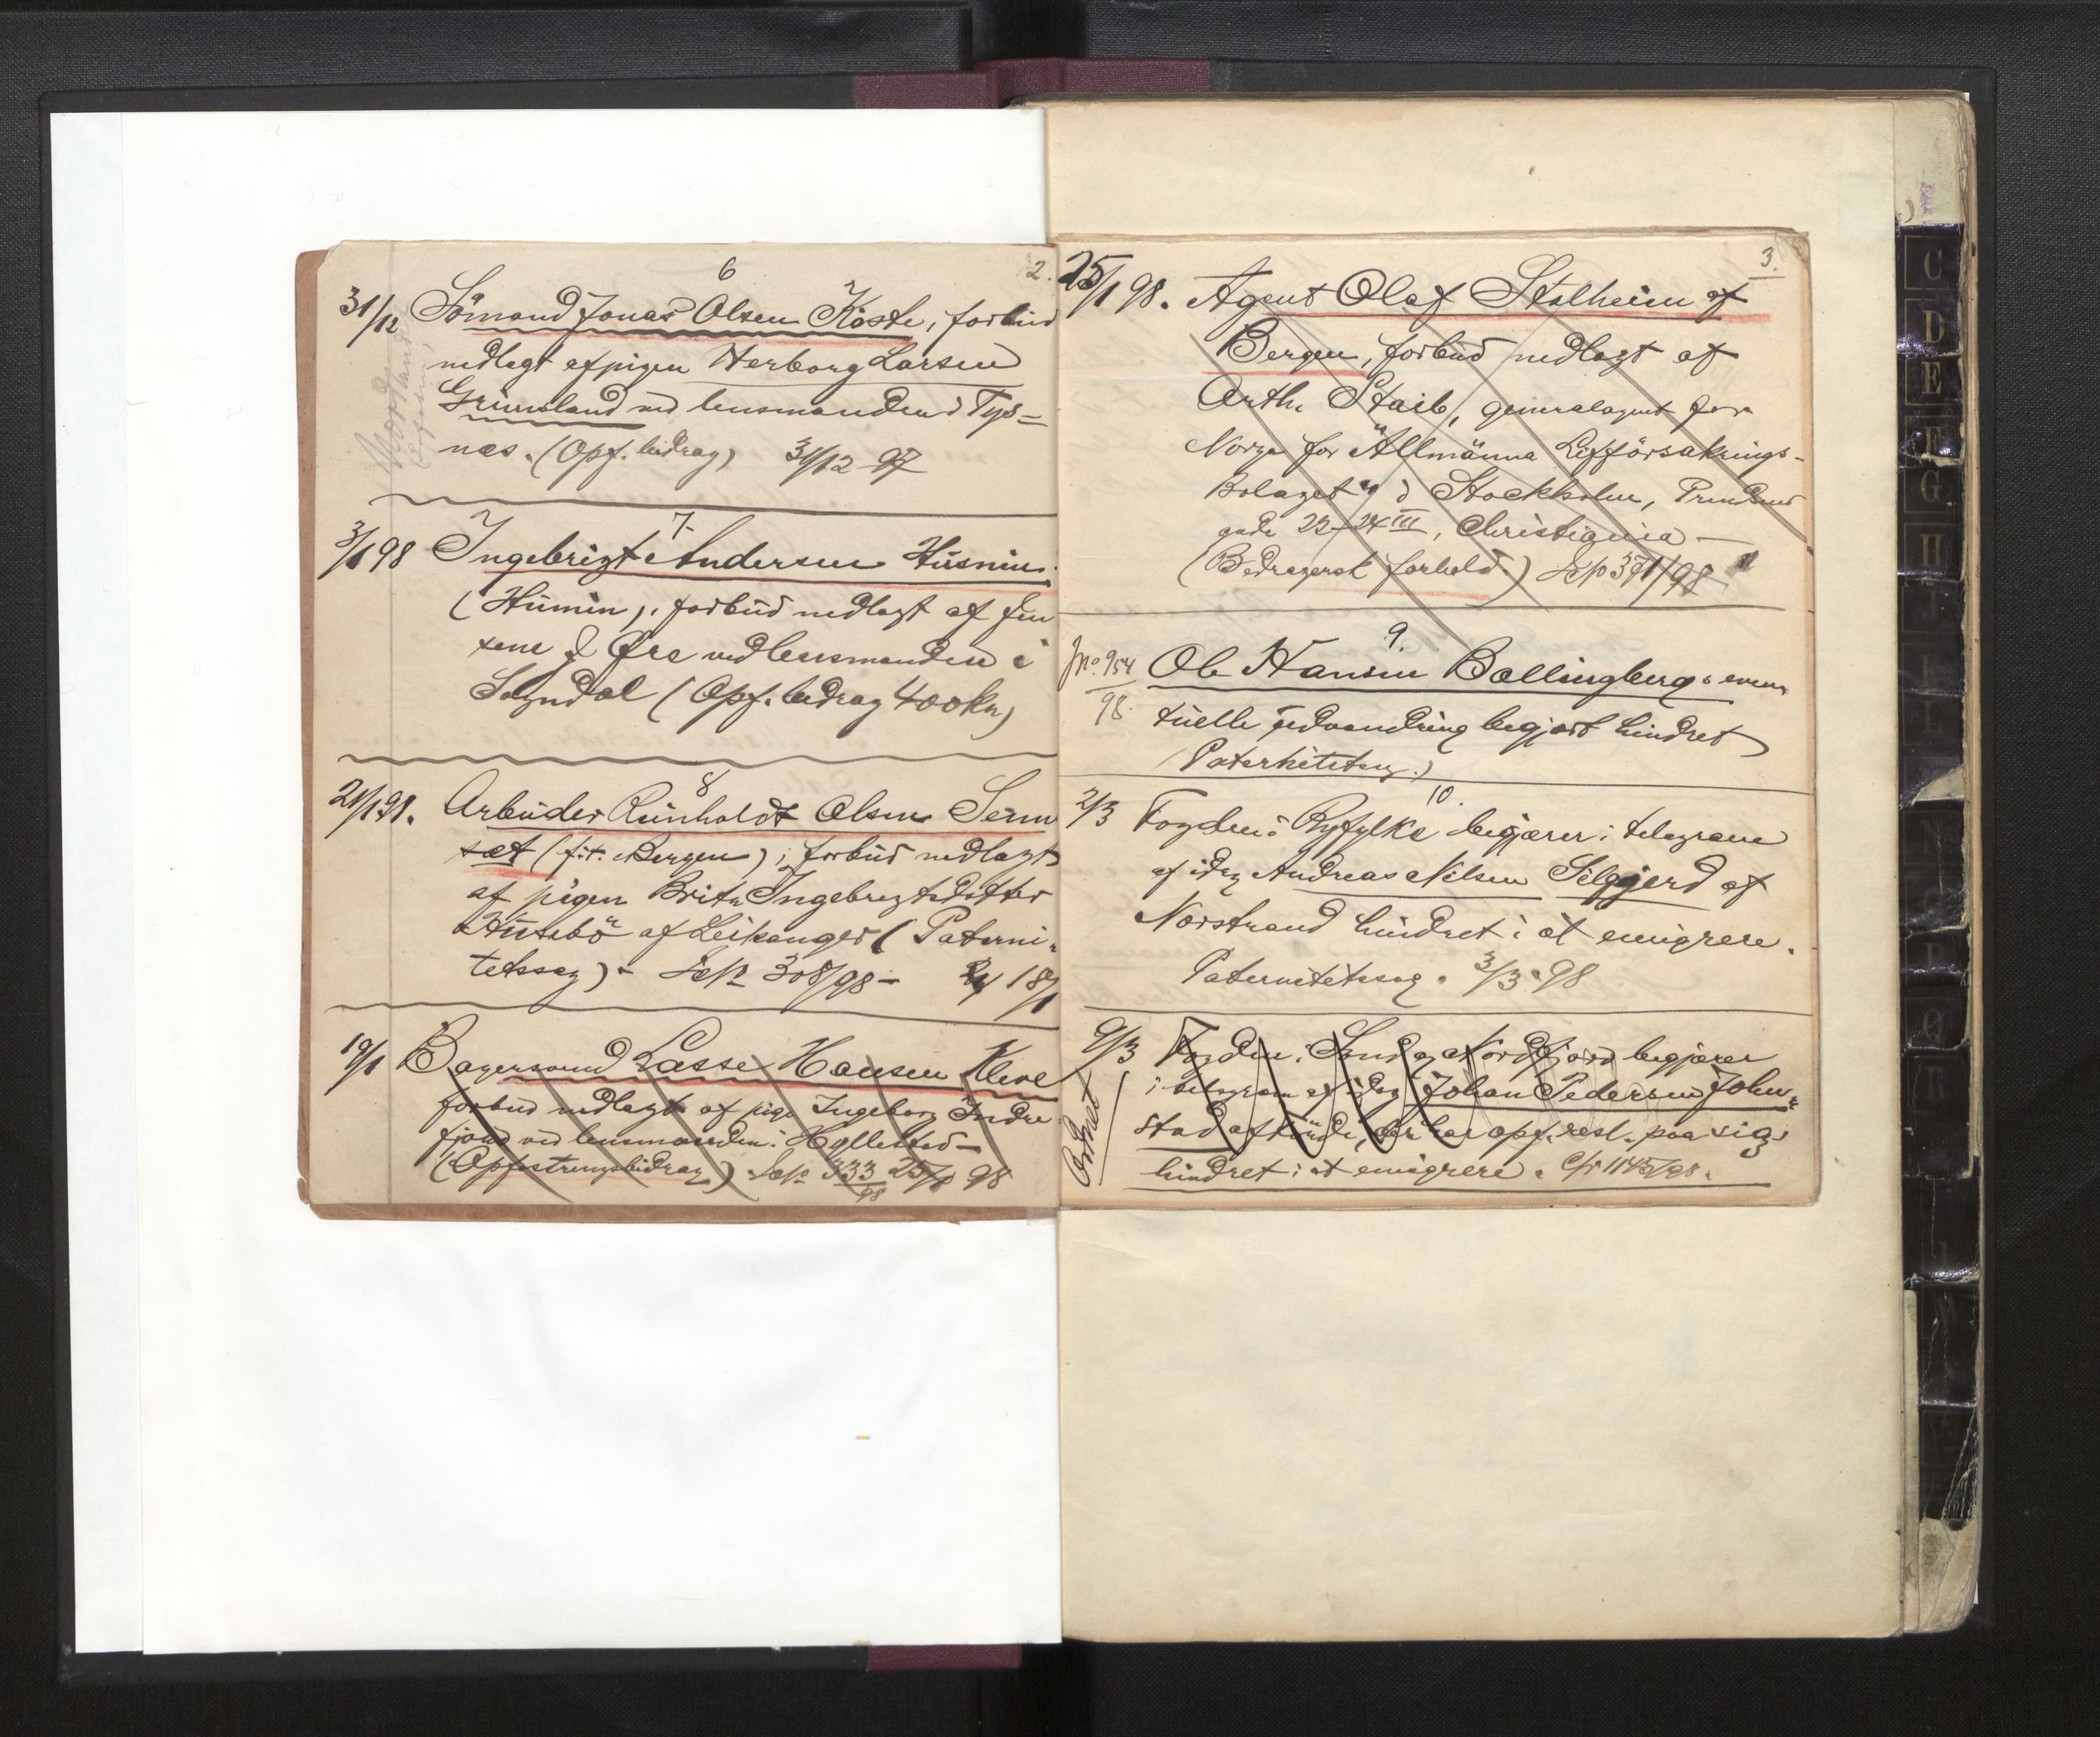 6
2.
31/12 Sömand Jonas Olsen Köste, forbud
nedlagt af pigen Herborg Larsen
Grimsland ved lensmanden i Tys-
næs. (Opf. bidrag) 31/12 97
7.
3/1 98 Ingebrigt Andersen Husmin
(Humin), forbud nedlagt af
ved lensmanden i
Sogndal (Opf. bidrag 400 Kr)
8
21/1 98. Arbeider Reinholdt Olsen Senn
set (f. t. Bergen); forbud nedlagt
af pigen Brita Ingebregtsdotter
Husebö af Leikanger (Paterni-
tetssag) - 308/98 - 18/1
19/1 Bagersvend Lasse Hansen Kleve
forbud nedlagt af pige Ingeborg Indre
fjord ved lensmanden i Hyllestad -
(Opfostringsbidrag) 333/98 25/1 98
3.
25/1 98. Agent Olaf Stalheim af
Bergen, forbud nedlagt af
Arth. Staib, generalagent for
Norge for "Allmänna Lifförsäkrings-
Bolaget" i Stockholm, Prindsens
gade 22-24 III, Christiania -
(Bedragersk forhold.) 391/98
9.
Jno. 954/98. Ole Hansen Ballingberg, even
tuelle udvandring begjært hindret
(Paternitetssag.)
10.
2/3 Fogden i Ryfylke begjærer i telegram
af idag Andreas Nilsen Selgjerd af
Norstrand hindret i at emigrere.
Paternitetssag. 3/3 98
9/3 Fogden i Sönd og Nordfjord begjærer
i telegram af idag Johan Pedersen John-
stad af der har opf. resl. paa sig,
hindret i at emigrere. 1145/98.
Ordnet
C
D
E
F
G
H